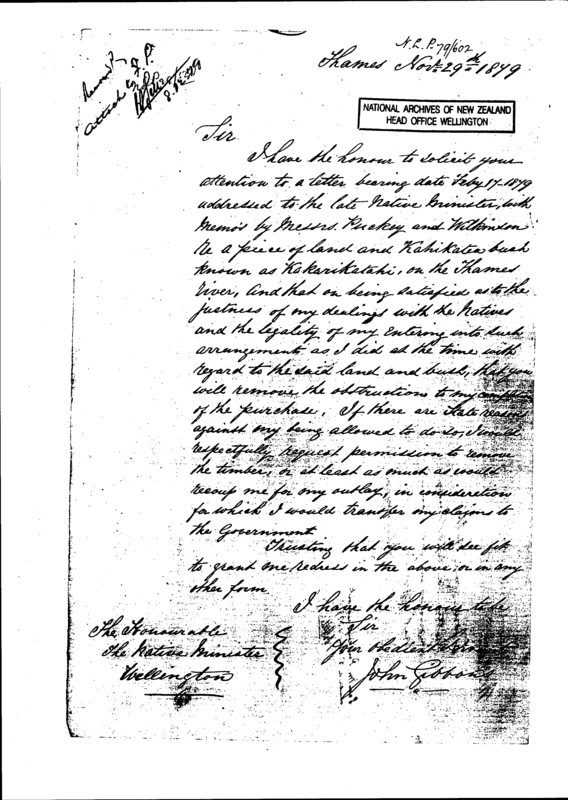 N.L.P. 79/602
Thames Novr. 29th 1879
Attach
NATIONAL ARCHIVES OF NEW ZEALAND
HEAD OFFICE WELLINGTON
Sir
I have the honour to solicit your
attention to a letter bearing date Feby 17-1879
addressed to the late Native Minister, with
Memo's by Messrs. Puckey and Wilkinson
Re a piece of land and Kahikatia bush
known as Kakarikatahi, on the Thames
River, And that on being satisfied as to the
justness of my dealings with the Natives
and the legality of my Entering into such
arrangements as I did at the time with
regard to the said land and bush, that you
will remove the obstructions to my completion
of the purchase. If there are State reasons
against my being allowed to do so, I would
respectfully request permission to remove
the timber, or at least as much as would
recoup me for my outlay, in consideration
for which I would transfer my claims to
the Government
Trusting that you will see fit
to grant me redress in the above, or in any
other form
I have the honour to be
Sir
Your obedient Servant
John Gibbons
The Honourable
The Native Minister
Wellington